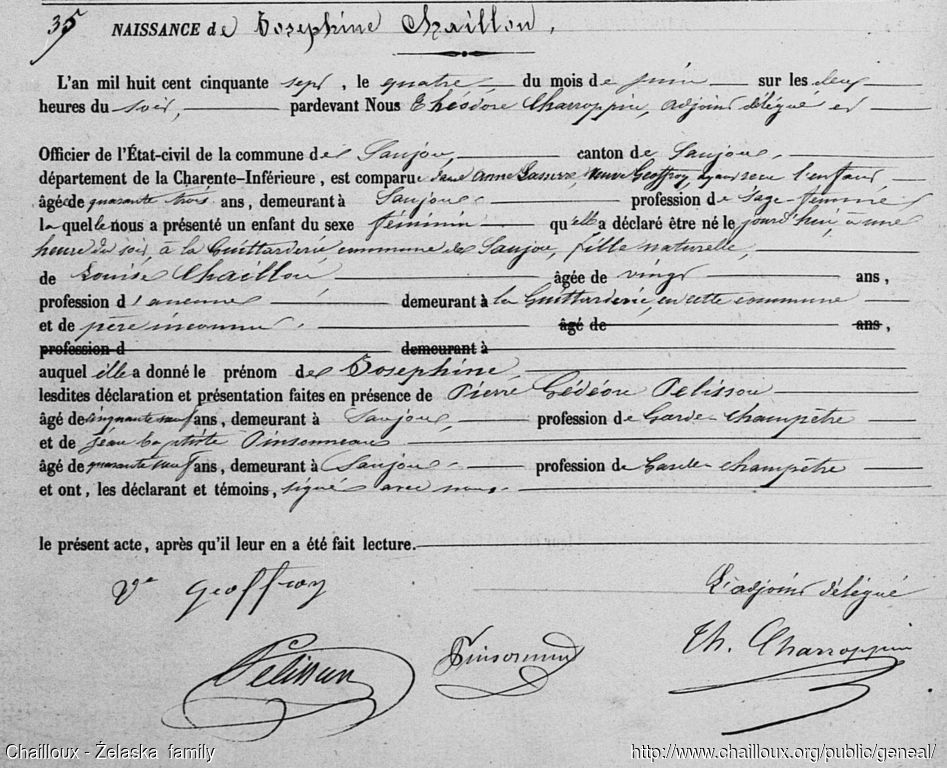 35 NAISSANCE de Josephine Chaillou,
L'an mil huit cent cinquante sept, le quatre du mois de juin sur les deux
heures du soir, pardevant Nous Théodore Charroppin, adjoint délégué et
Officier de l'État-civil de la commune de Saujon, canton de Saujon,
département de la Charente-Inférieure, est comparue dame Anne Veuve Geoffroy, ayant reçu l'enfant,
âgée de quarante trois ans, demeurant à Saujon profession de Sage-femme
laquelle nous a présenté un enfant du sexe féminin qu'elle a déclaré être né le jourd'hui, à une
heure du soir, à la Guittarderie commune de Saujon, fille naturelle,
de Louise Chaillou, âgée de vingt ans,
profession d demeurant à la Guittarderie, en cette commune
et de père inconnu. âgé de ans,
profession d demeurant à
auquel elle a donné le prénom de Josephine.
lesdites déclaration et présentation faites en présence de Pierre Gédéon Pelisson
âgé de cinquante neuf ans, demeurant à Saujon, profession de Garde-champêtre
et de Jean Baptiste Pinsonneau
âgé de quarante neuf ans, demeurant à Saujon profession de Garde-champêtre
et ont, les déclarant et témoins, signé avec nous.
le présent acte, après qu'il leur en a été fait lecture.
Ve Geoffroy L'adjoint délégué
Pelisson Pinsonneau Th. Charroppin
Chailloux - Żelaska family http://www.chailloux.org/public/geneal/